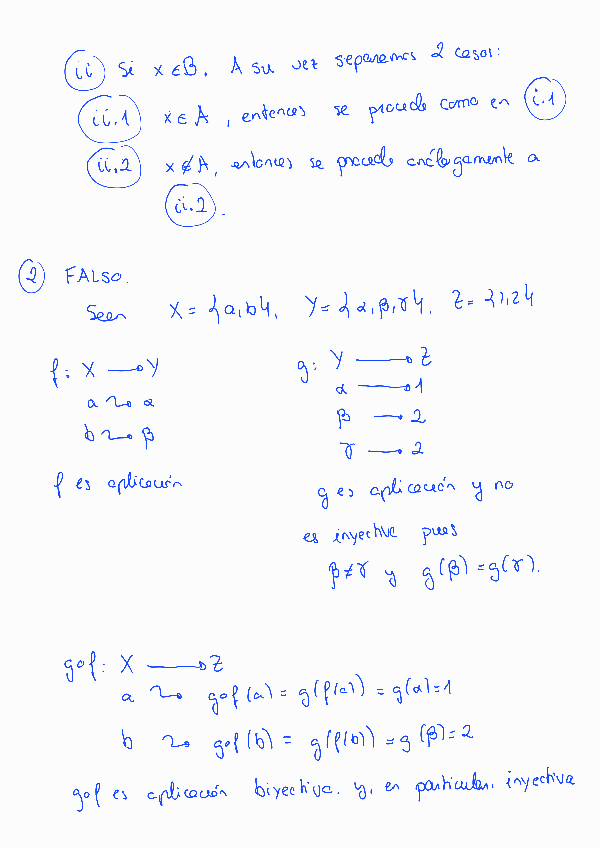 ii Si x ∈ B. A su vez separamos 2 casos:
ii.1 x ∈ A, entonces se procede como en i.1
ii.2 x ∉ A, entonces se procede análogamente a
ii.2.
2 FALSO.
Sean X = {a, b}, Y = {α, β, γ}, Z = {1, 2}
f: X → Y
a ⇝ α
b ⇝ β
f es aplicación
g: Y → Z
α → 1
β → 2
γ → 2
g es aplicación y no
es inyectiva pues
β ≠ γ y g(β) = g(γ).
gof: X → Z
a ⇝ gof(a) = g(f(a)) = g(α) = 1
b ⇝ gof(b) = g(f(b)) = g(β) = 2
gof es aplicación biyectiva. y, en particular, inyectiva